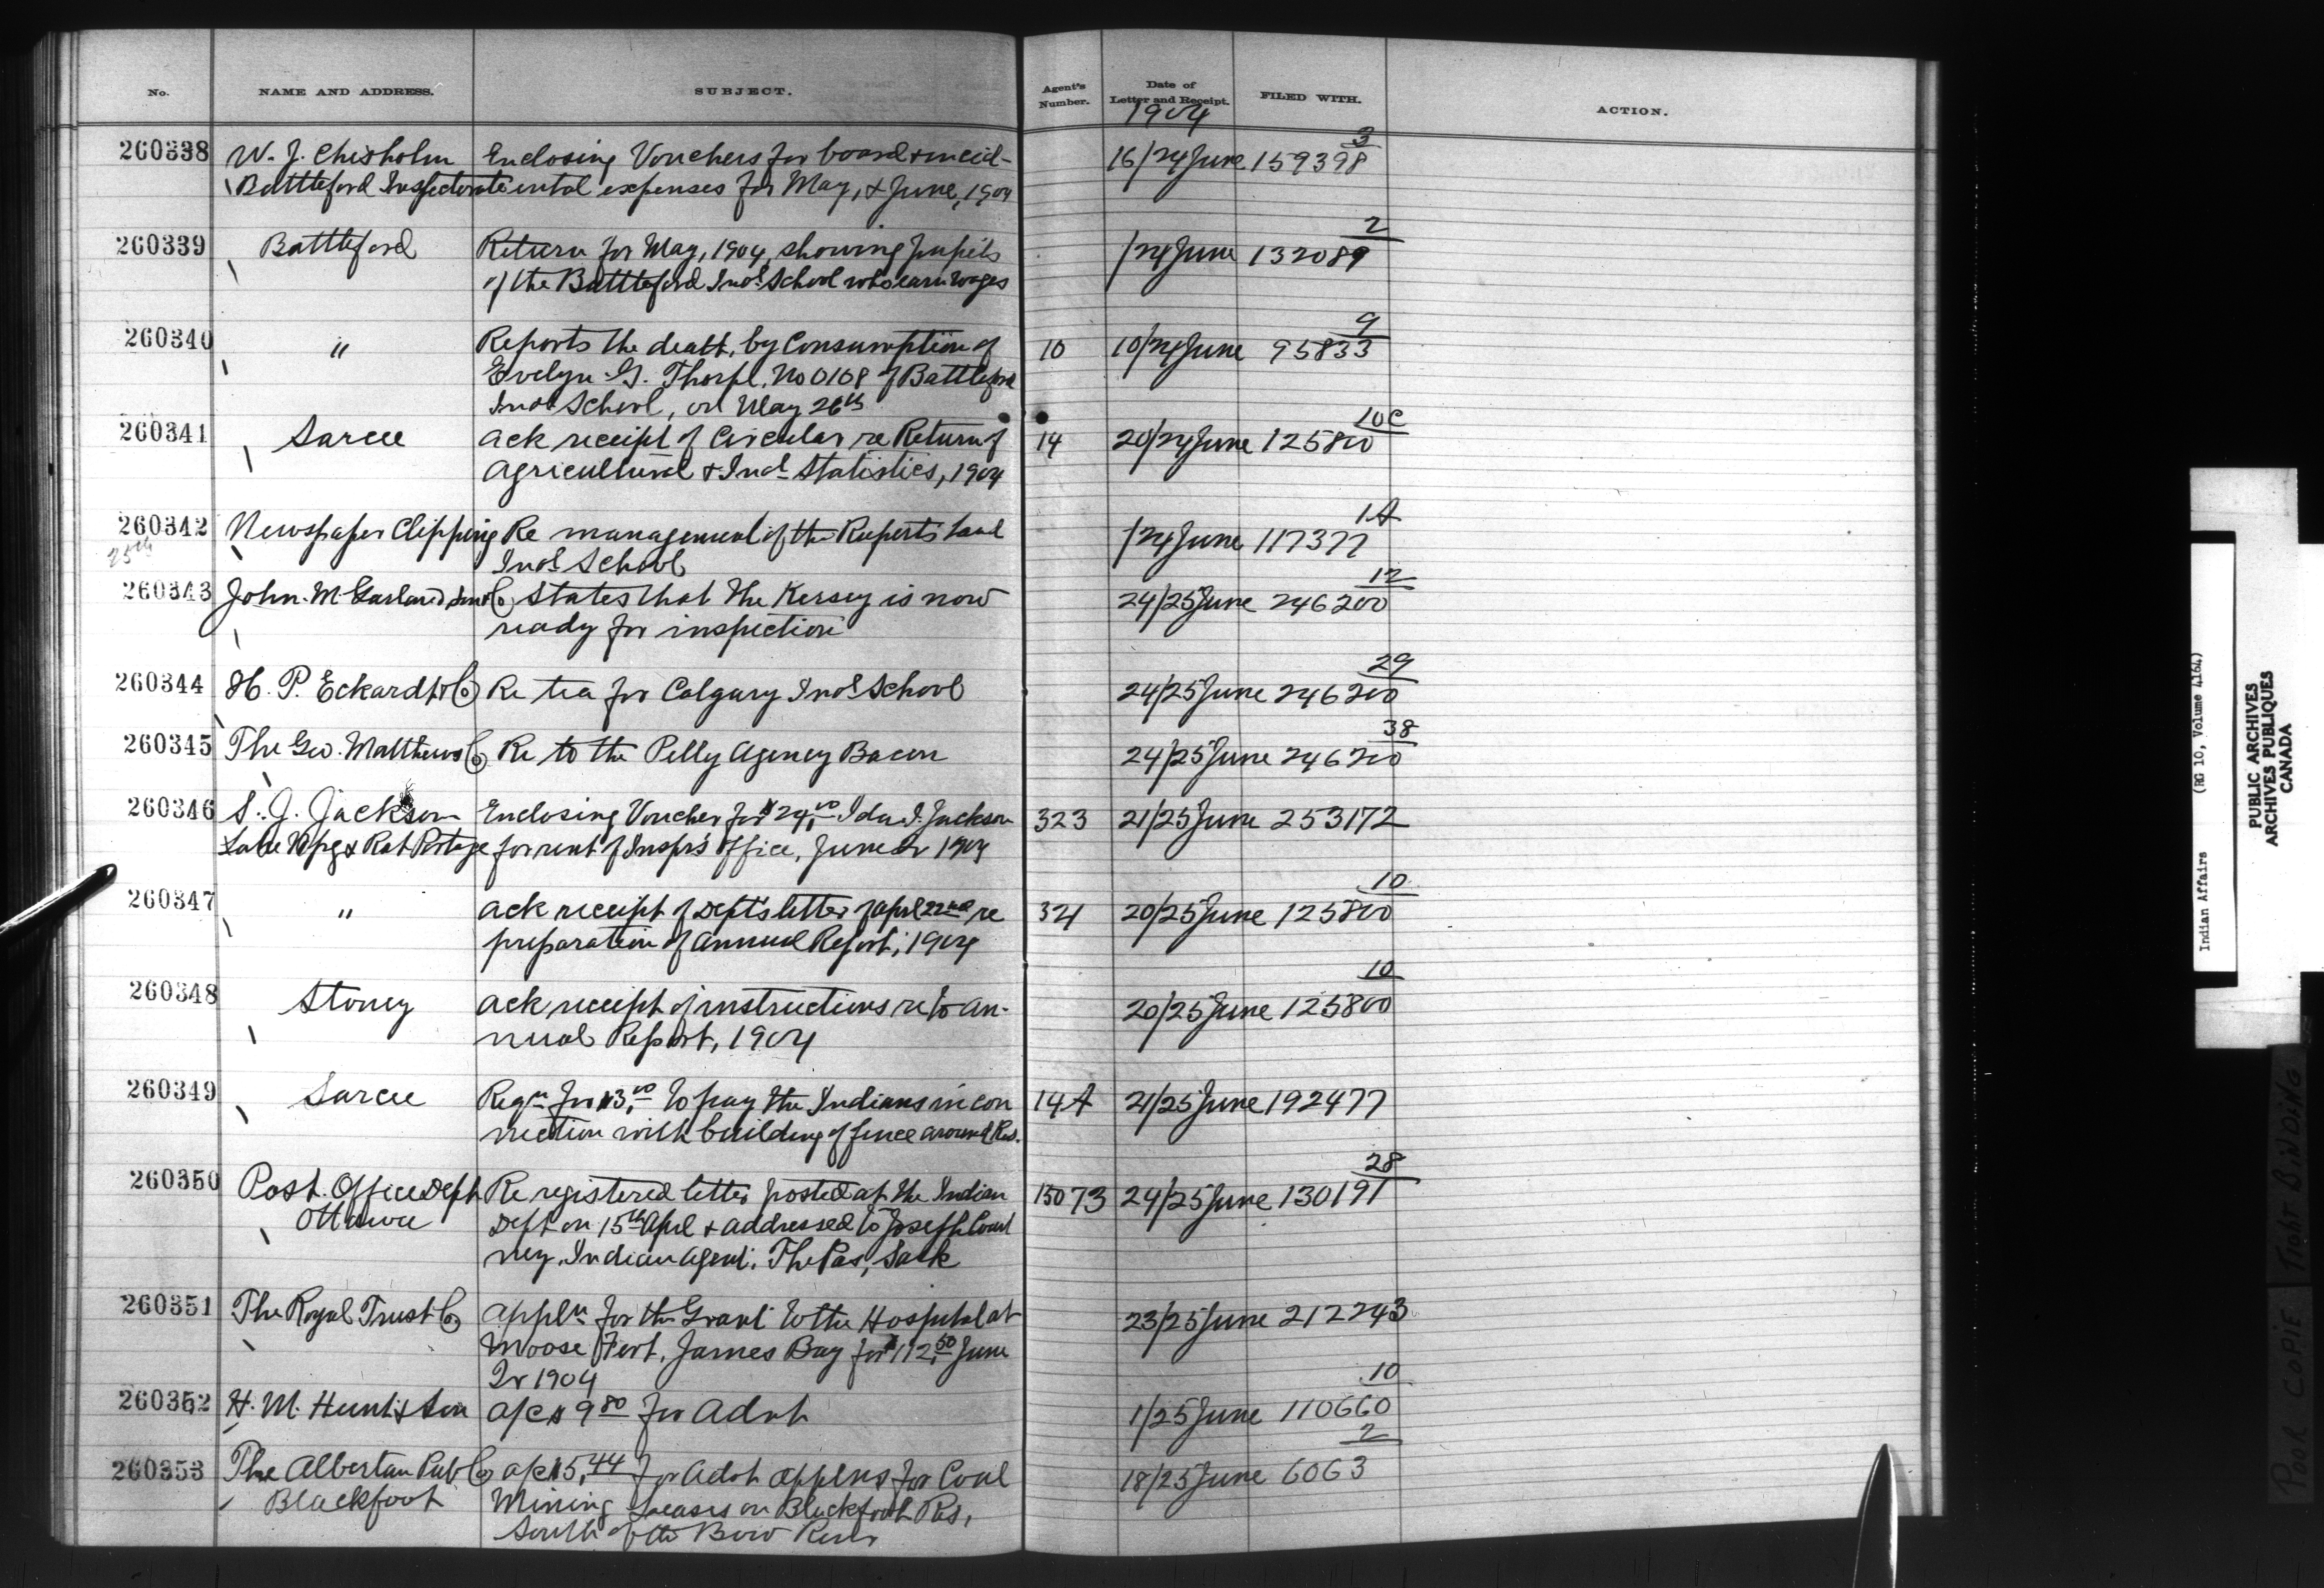 No. NAME AND ADDRESS. SUBJECT. Agent's Number. Date of Letter and Receipt. FILED WITH. ACTION.
1904
260338 W. J. Chisholm Enclosing Vouchers for board & incid- 16/24 June 159398 3
Battleford Inspectorate ental expenses for May, & June, 1904
260339 Battleford Return for May, 1904, showing pupils /24 June 132089 2
of the Battleford Indl School who earn wages
260340 " Reports the death, by Consumption of 10 10/24 June 95833 9
Evelyn G. Thorpe, No 0108 of Battleford
Indl School, on May 26th
260341 Sarcee Ack receipt of Circular re Return of 14 20/24 June 125800 10C
Agricultural & Indl Statistics, 1904
260342 Newspaper Clipping Re management of the Ruperts Land /24 June 117377 1A
25th Indl School
260343 John M Garland Son & Co States that the Kersey is now 24/25 June 246200 12
ready for inspection
260344 H. P. Eckardt & Co Re tea for Calgary Indl School 24/25 June 246200 29
260345 The Geo. Matthews Co Re to the Pelly Agency Bacon 24/25 June 246200 38
260346 S. J. Jackson Enclosing Voucher for $24.00 Ida I. Jackson 323 21/25 June 253172
Lake Wpg & Rat Portage for rent of Inspr's Office, June Qr 1904
260347 " Ack receipt of Dept's letter of Apl 22nd re 321 20/25 June 125800 10
preparation of Annual Report, 1904
260348 Stoney Ack receipt of instructions re to An- 20/25 June 125800 10
nual Report, 1904
260349 Sarcee Reqn for $13.00 to pay the Indians in con 14A 21/25 June 192477
nection with building of fence around Res.
260350 Post Office Dept Re registered letter posted at the Indian 15073 24/25 June 130191 28
Ottawa Dept on 15th Apl & addressed to Joseph Court
ney, Indian Agent, The Pas, Sask
260351 The Royal Trust Co Appln for the Grant to the Hospital at 23/25 June 212243
Moose Fort, James Bay for $112.50 June
Qr 1904
260352 H. M. Hunt & Son a/c $9.80 for Advt 1/25 June 110660 10
260353 The Albertan Pub Co a/c $15.44 for Advt Applns for Coal 18/25 June 6063 2
Blackfoot Mining Leases on Blackfoot Res,
South of the Bow River
Indian Affairs (RG 10, Volume 4164)
PUBLIC ARCHIVES
ARCHIVES PUBLIQUES
CANADA
POOR COPIE TIGHT BINDING